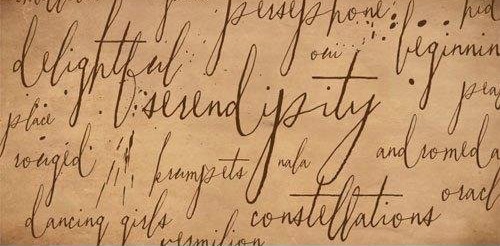 persephone
delightful oui beginnin
serendipity
place
rouged krumpets nala andromeda
dancing girls constellations orac
vermilion